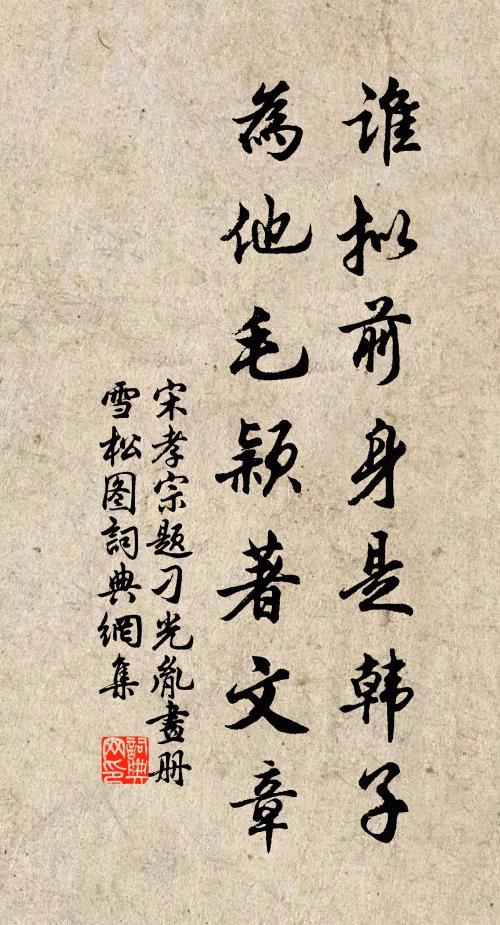 谁拟前身是韩子
為他毛颖著文章
宋孝宗题刁光胤畫册
雪松图詞典網集
詞典
网印